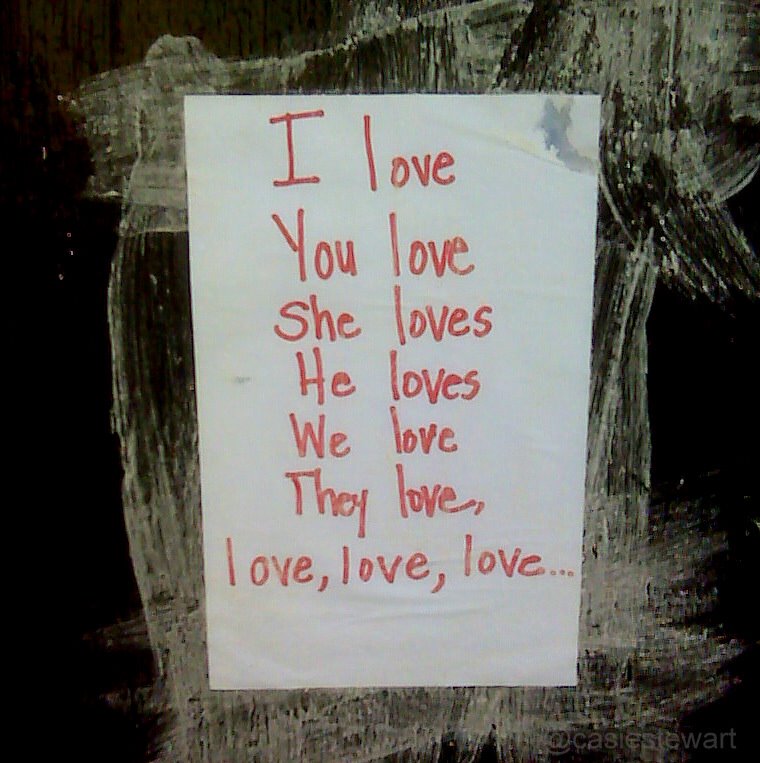 I love
You love
She loves
He loves
We love
They love,
love, love, love...
@casiestewart